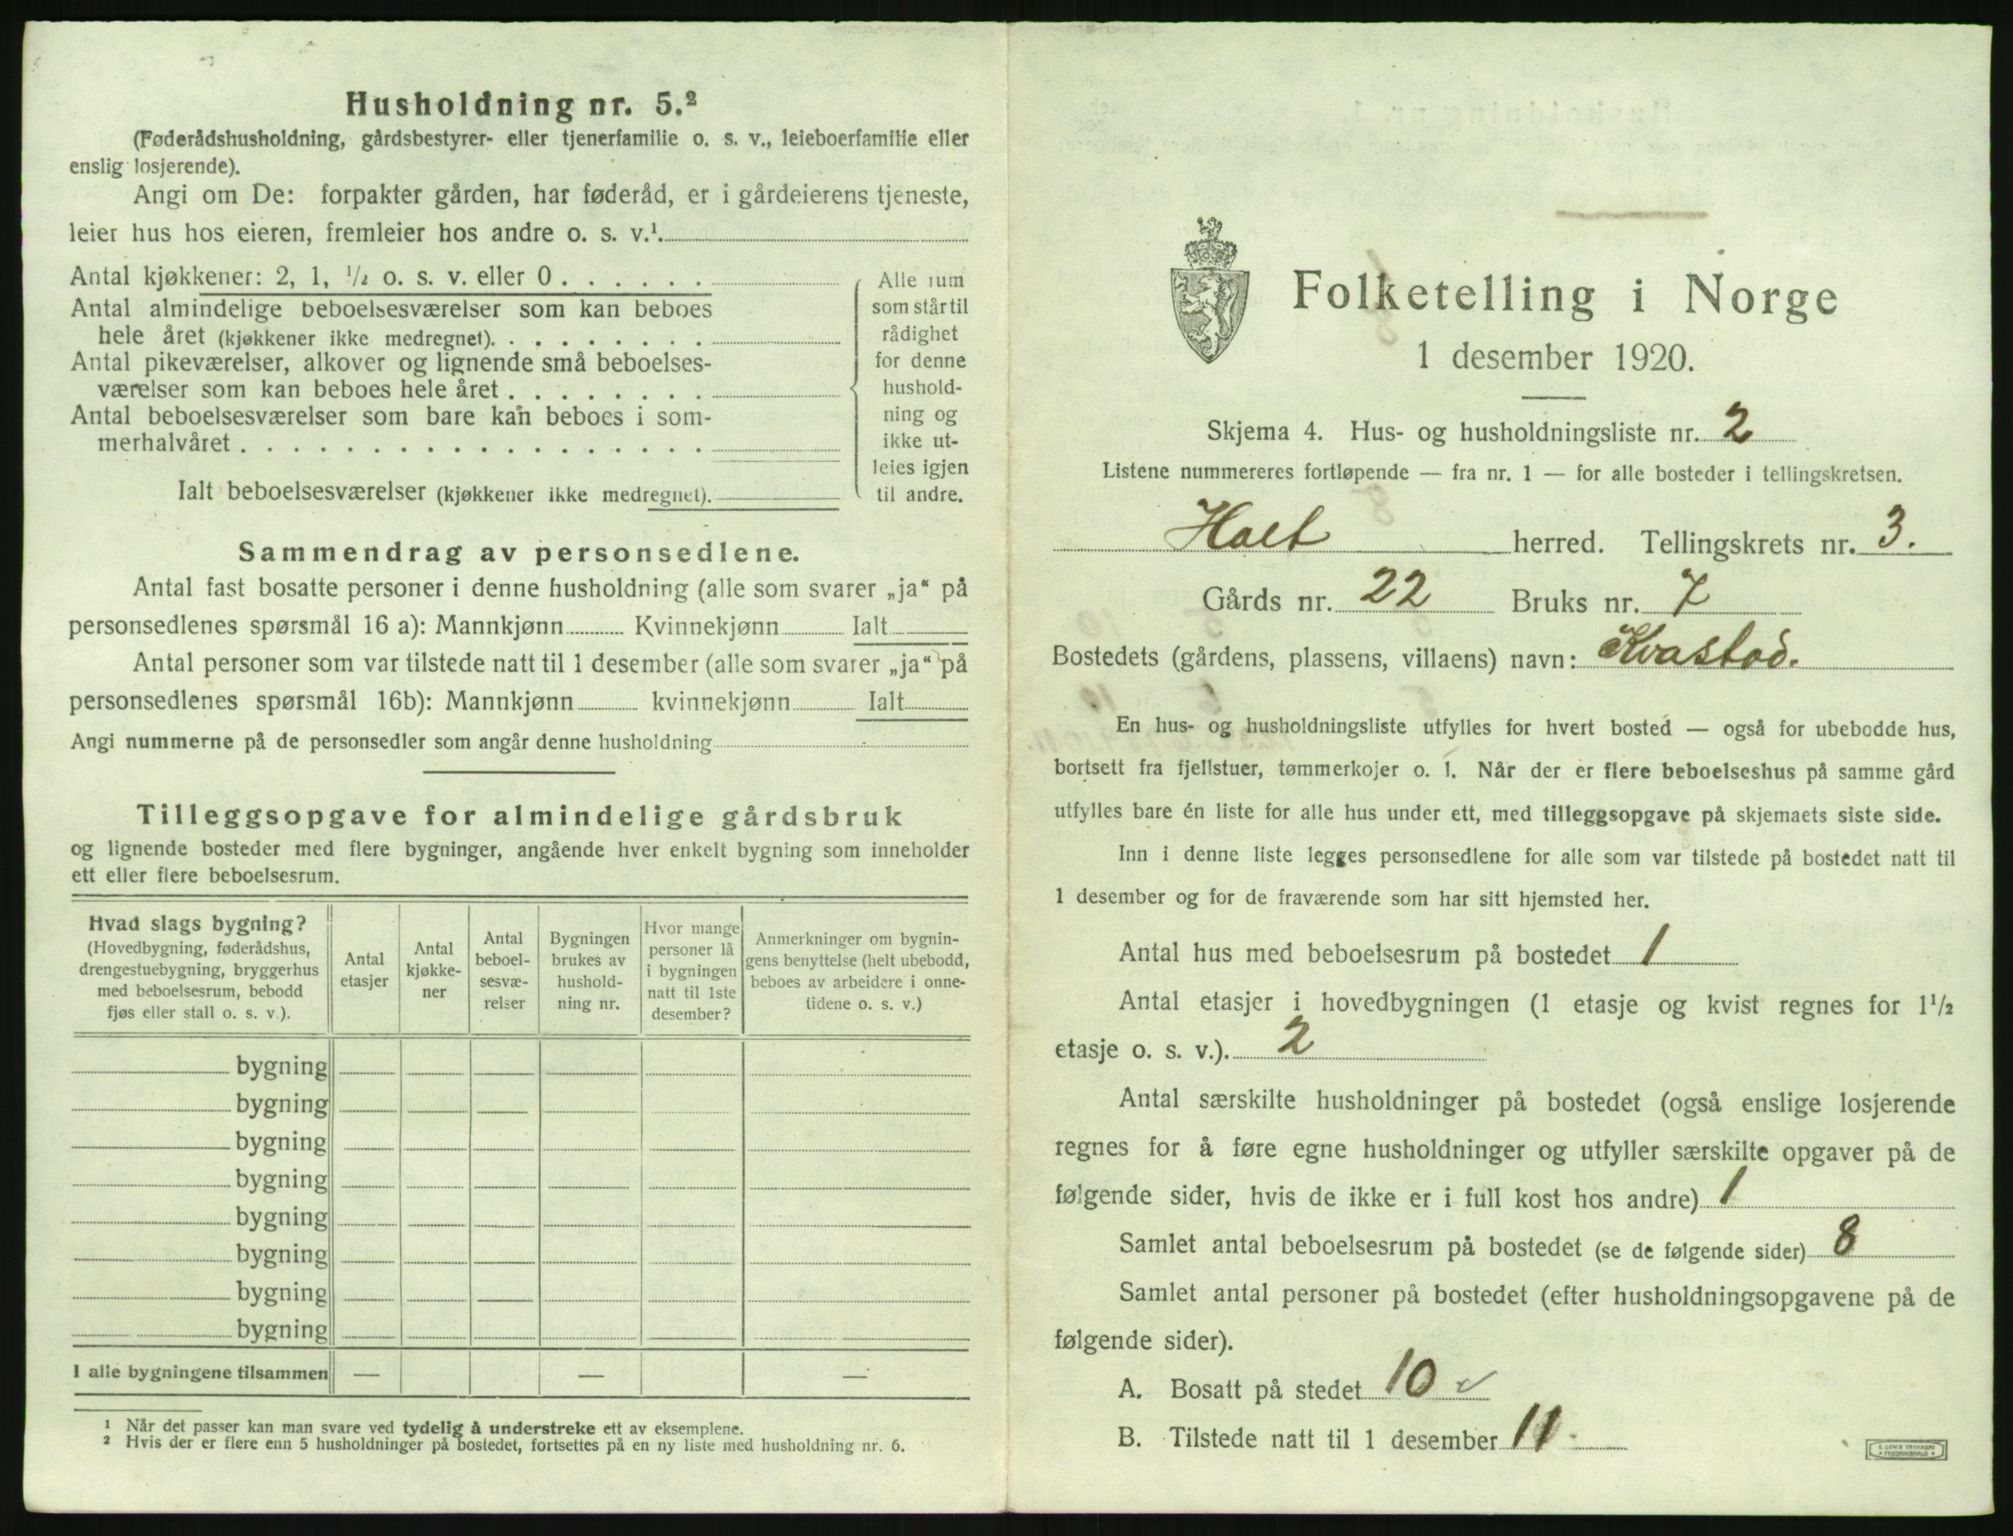 Husholdning nr. 5.²
(Føderådshusholdning, gårdsbestyrer- eller tjenerfamilie o. s. v., leieboerfamilie eller
enslig losjerende).
Angi om De: forpakter gården, har føderåd, er i gårdeierens tjeneste,
leier hus hos eieren, fremleier hos andre o. s. v.¹
Antal kjøkkener: 2, 1, ½ o. s. v. eller 0 . . . . . .
Antal almindelige beboelsesværelser som kan beboes
hele året (kjøkkener ikke medregnet). . . . . . . . .
Antal pikeværelser, alkover og lignende små beboelses-
værelser som kan beboes hele året . . . . . . . .
Antal beboelsesværelser som bare kan beboes i som-
merhalvåret . . . . . . . . . . . . . . . . . .
Ialt beboelsesværelser (kjøkkener ikke medregnet).
Alle rum
som står til
rådighet
for denne
hushold-
ning og
ikke ut-
leies igjen
til andre.
Sammendrag av personsedlene.
Antal fast bosatte personer i denne husholdning (alle som svarer „ja“ på
personsedlenes spørsmål 16 a): Mannkjønn Kvinnekjønn Ialt
Antal personer som var tilstede natt til 1 desember (alle som svarer „ja“ på
personsedlenes spørsmål 16b): Mannkjønn kvinnekjønn Ialt
Angi nummerne på de personsedler som angår denne husholdning
Tilleggsopgave for almindelige gårdsbruk
og lignende bosteder med flere bygninger, angående hver enkelt bygning som inneholder
ett eller flere beboelsesrum.
Hvad slags bygning?
(Hovedbygning, føderådshus,
drengestuebygning, bryggerhus
med beboelsesrum, bebodd
fjøs eller stall o. s. v.).
Antal
etasjer
Antal
kjøkke-
ner
Antal
beboel-
sesvæ-
relser
Bygningen
brukes av
hushold-
ning nr.
Hvor mange
personer lå
i bygningen
natt til 1ste
desember?
Anmerkninger om bygnin-
gens benyttelse (helt ubebodd,
beboes av arbeidere i onne-
tidene o. s. v.)
bygning
bygning
bygning
bygning
bygning
bygning
bygning
bygning
I alle bygningene tilsammen — — —
¹ Når det passer kan man svare ved tydelig å understreke ett av eksemplene.
² Hvis der er flere enn 5 husholdninger på bostedet, fortsettes på en ny liste med husholdning nr. 6.
Folketelling i Norge
1 desember 1920.
Skjema 4. Hus- og husholdningsliste nr. 2
Listene nummereres fortløpende — fra nr. 1 — for alle bosteder i tellingskretsen.
Holt herred. Tellingskrets nr. 3.
Gårds nr. 22 Bruks nr. 7
Bostedets (gårdens, plassens, villaens) navn: Kvastad.
En hus- og husholdningsliste utfylles for hvert bosted — også for ubebodde hus,
bortsett fra fjellstuer, tømmerkojer o. l. Når der er flere beboelseshus på samme gård
utfylles bare én liste for alle hus under ett, med tilleggsopgave på skjemaets siste side.
Inn i denne liste legges personsedlene for alle som var tilstede på bostedet natt til
1 desember og for de fraværende som har sitt hjemsted her.
Antal hus med beboelsesrum på bostedet 1
Antal etasjer i hovedbygningen (1 etasje og kvist regnes for 1½
etasje o. s. v.). 2
Antal særskilte husholdninger på bostedet (også enslige losjerende
regnes for å føre egne husholdninger og utfyller særskilte opgaver på de
følgende sider, hvis de ikke er i full kost hos andre) 1
Samlet antal beboelsesrum på bostedet (se de følgende sider) 8
Samlet antal personer på bostedet (efter husholdningsopgavene på de
følgende sider).
A. Bosatt på stedet 10 ✓
B. Tilstede natt til 1 desember 11